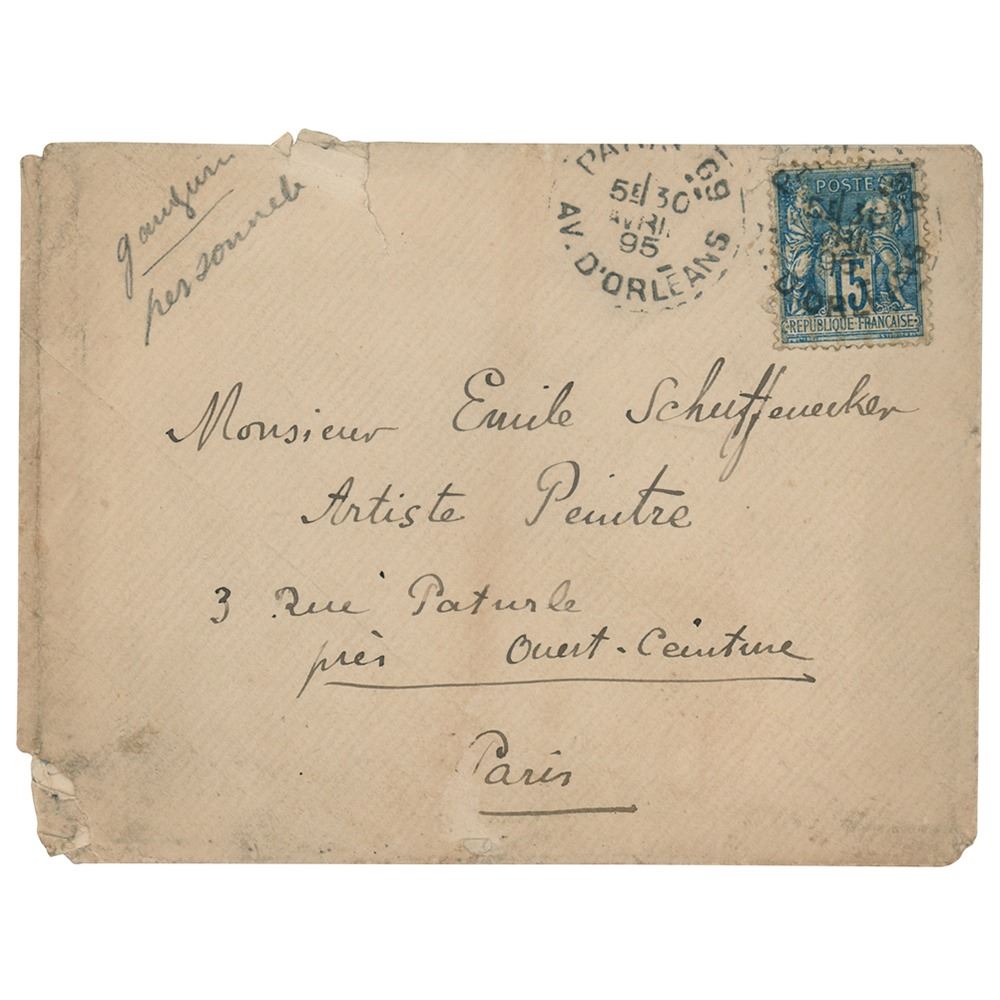 gauguin
personnel
PARIS 69
5E/30
AVRIL
95
AV. D'ORLEANS
POSTE
15
REPUBLIQUE FRANCAISE
Monsieur Emile Schuffenecker
Artiste Peintre
3 Rue Paturle
près Ouest-Ceinture
Paris